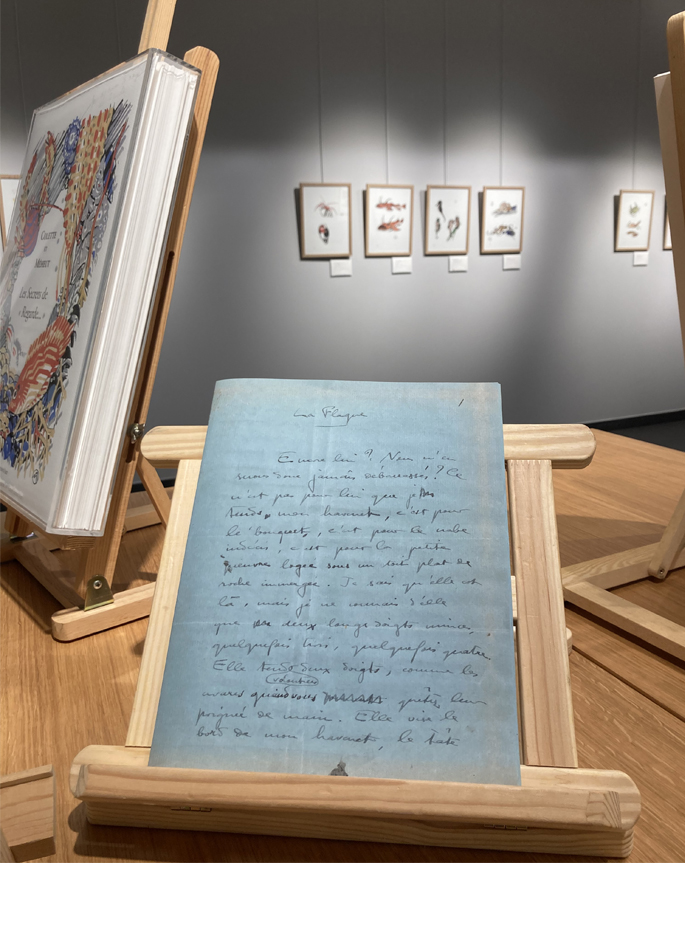 COLETTE
DE
MÉHEUT
Les Secrets de
Regarde...
La Flaque
1
Encore lui ? Nous n'en
serons donc jamais débarrassés ? Ce
n'est pas pour lui que je
tends mon havenet, c'est pour
le bouquet, c'est pour le crabe
c'est pour la petite
pieuvre logée sous un toit plat de
roche immergée. Je sais qu'elle est
là, mais je ne connais d'elle
que deux longs doigts minces,
quelquefois trois, quelquefois quatre.
Elle tend deux doigts, comme les
volontiers
avares quand vous quêtez leur
poignée de main. Elle vise le
bord de mon havenet, le tâte